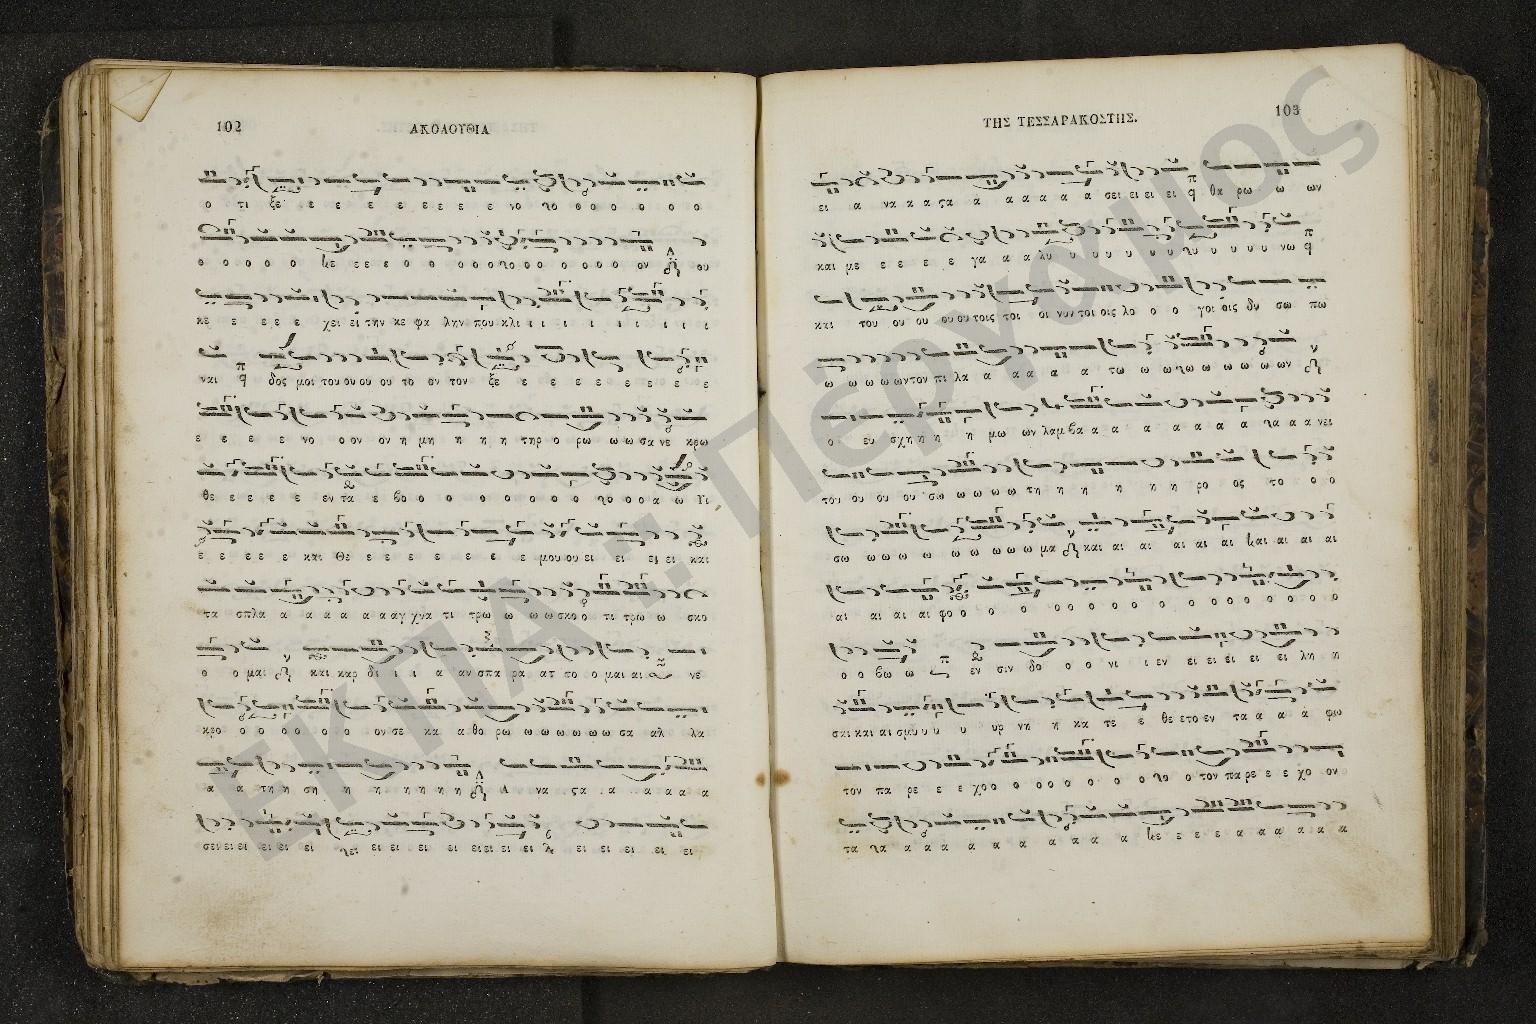 102
ΑΚΟΛΟΥΘΙΑ
ο τι ξε ε ε ε ε ε ε ε ε νο χο ο ο ο ο ο ο
ο ο ο ο ο κε ε ε ε ο ο ο ο ο χο ο ο ο ο ο ο ον ου
κε ε ε ε ε χει ει την κε φα λην που κλι ι ι ι ι ι ι ι ι ι
ναι δος μοι του ου ου ου το ον τον ξε ε ε ε ε ε ε ε ε
ε ε ε ε νο ο ον ον η μη η η η τηρ ο ρω ω ω σα νε κρω
θε ε ε ε ε εν τα ε βο ο ο ο ο ο ο ο ο χο ο ο α ω Υι
ε ε ε ε ε και Θε ε ε ε ε ε ε ε μου ου ει ει ει ει και
τα σπλα α α α α α α αγ χνα τι τρω ω ω ω σκο ο τι τρω ω σκο
ο ο μαι και καρ δι ι ι α αν σπα ρα ατ το ο μαι αι νε
κρο ο ο ο ο ο ο ο ον σε κα α θο ρω ω ω ω ω ω ω σα αλ λα
α α τη η ση η η η η η η Α να ςα α α α α α
σει ει ει ει ει ει χει ει ει ει ει ει ει ει ει ει ει ει ει ει ει
103
ΤΗΣ ΤΕΣΣΑΡΑΚΟΣΤΗΣ.
ει α να α α ςα α α α α α α σει ει ει ει θα ρω ω ων
και με ε ε ε ε γα α α λυ υ υ υ υ υ υ χυ υ υ υ υ νω
και του ου ου ου ου τοις τοι οι νυν τοι οις λο ο ο γοι οις δυ σω πω
ω ω ω ω ων τον πι λα α α α α α τω ω ω χω ω ω ω ω ων
ο ευ σχη η η η μω ων λαμ βα α α α α α α α χα α α νει
του ου ου ου σω ω ω ω ω τη η η η η η ρο ος το ο ο
σω ω ω ω ω ω ω ω ω ω μα και αι αι αι αι αι και αι αι αι
αι αι αι αι φο ο ο ο ο ο ο ο ο ο ο ο ο ο ο ο ο ο
ο ο βω ω εν σιν δο ο ο νι ι εν ει ει ει ει ει λη η
σαι και αι σμυ υ υ υ υρ νη η κα τε ε θε ετο εν τα α α α φω
τον πα ρε ε ε χο ο ο ο ο ο ο ο ο χο ο τον πα ρε ε ε χο ον
τα χα α α α α α α α α α κε ε ε ε α α α α α α
ΕΚΠΑ: Πέργαμος